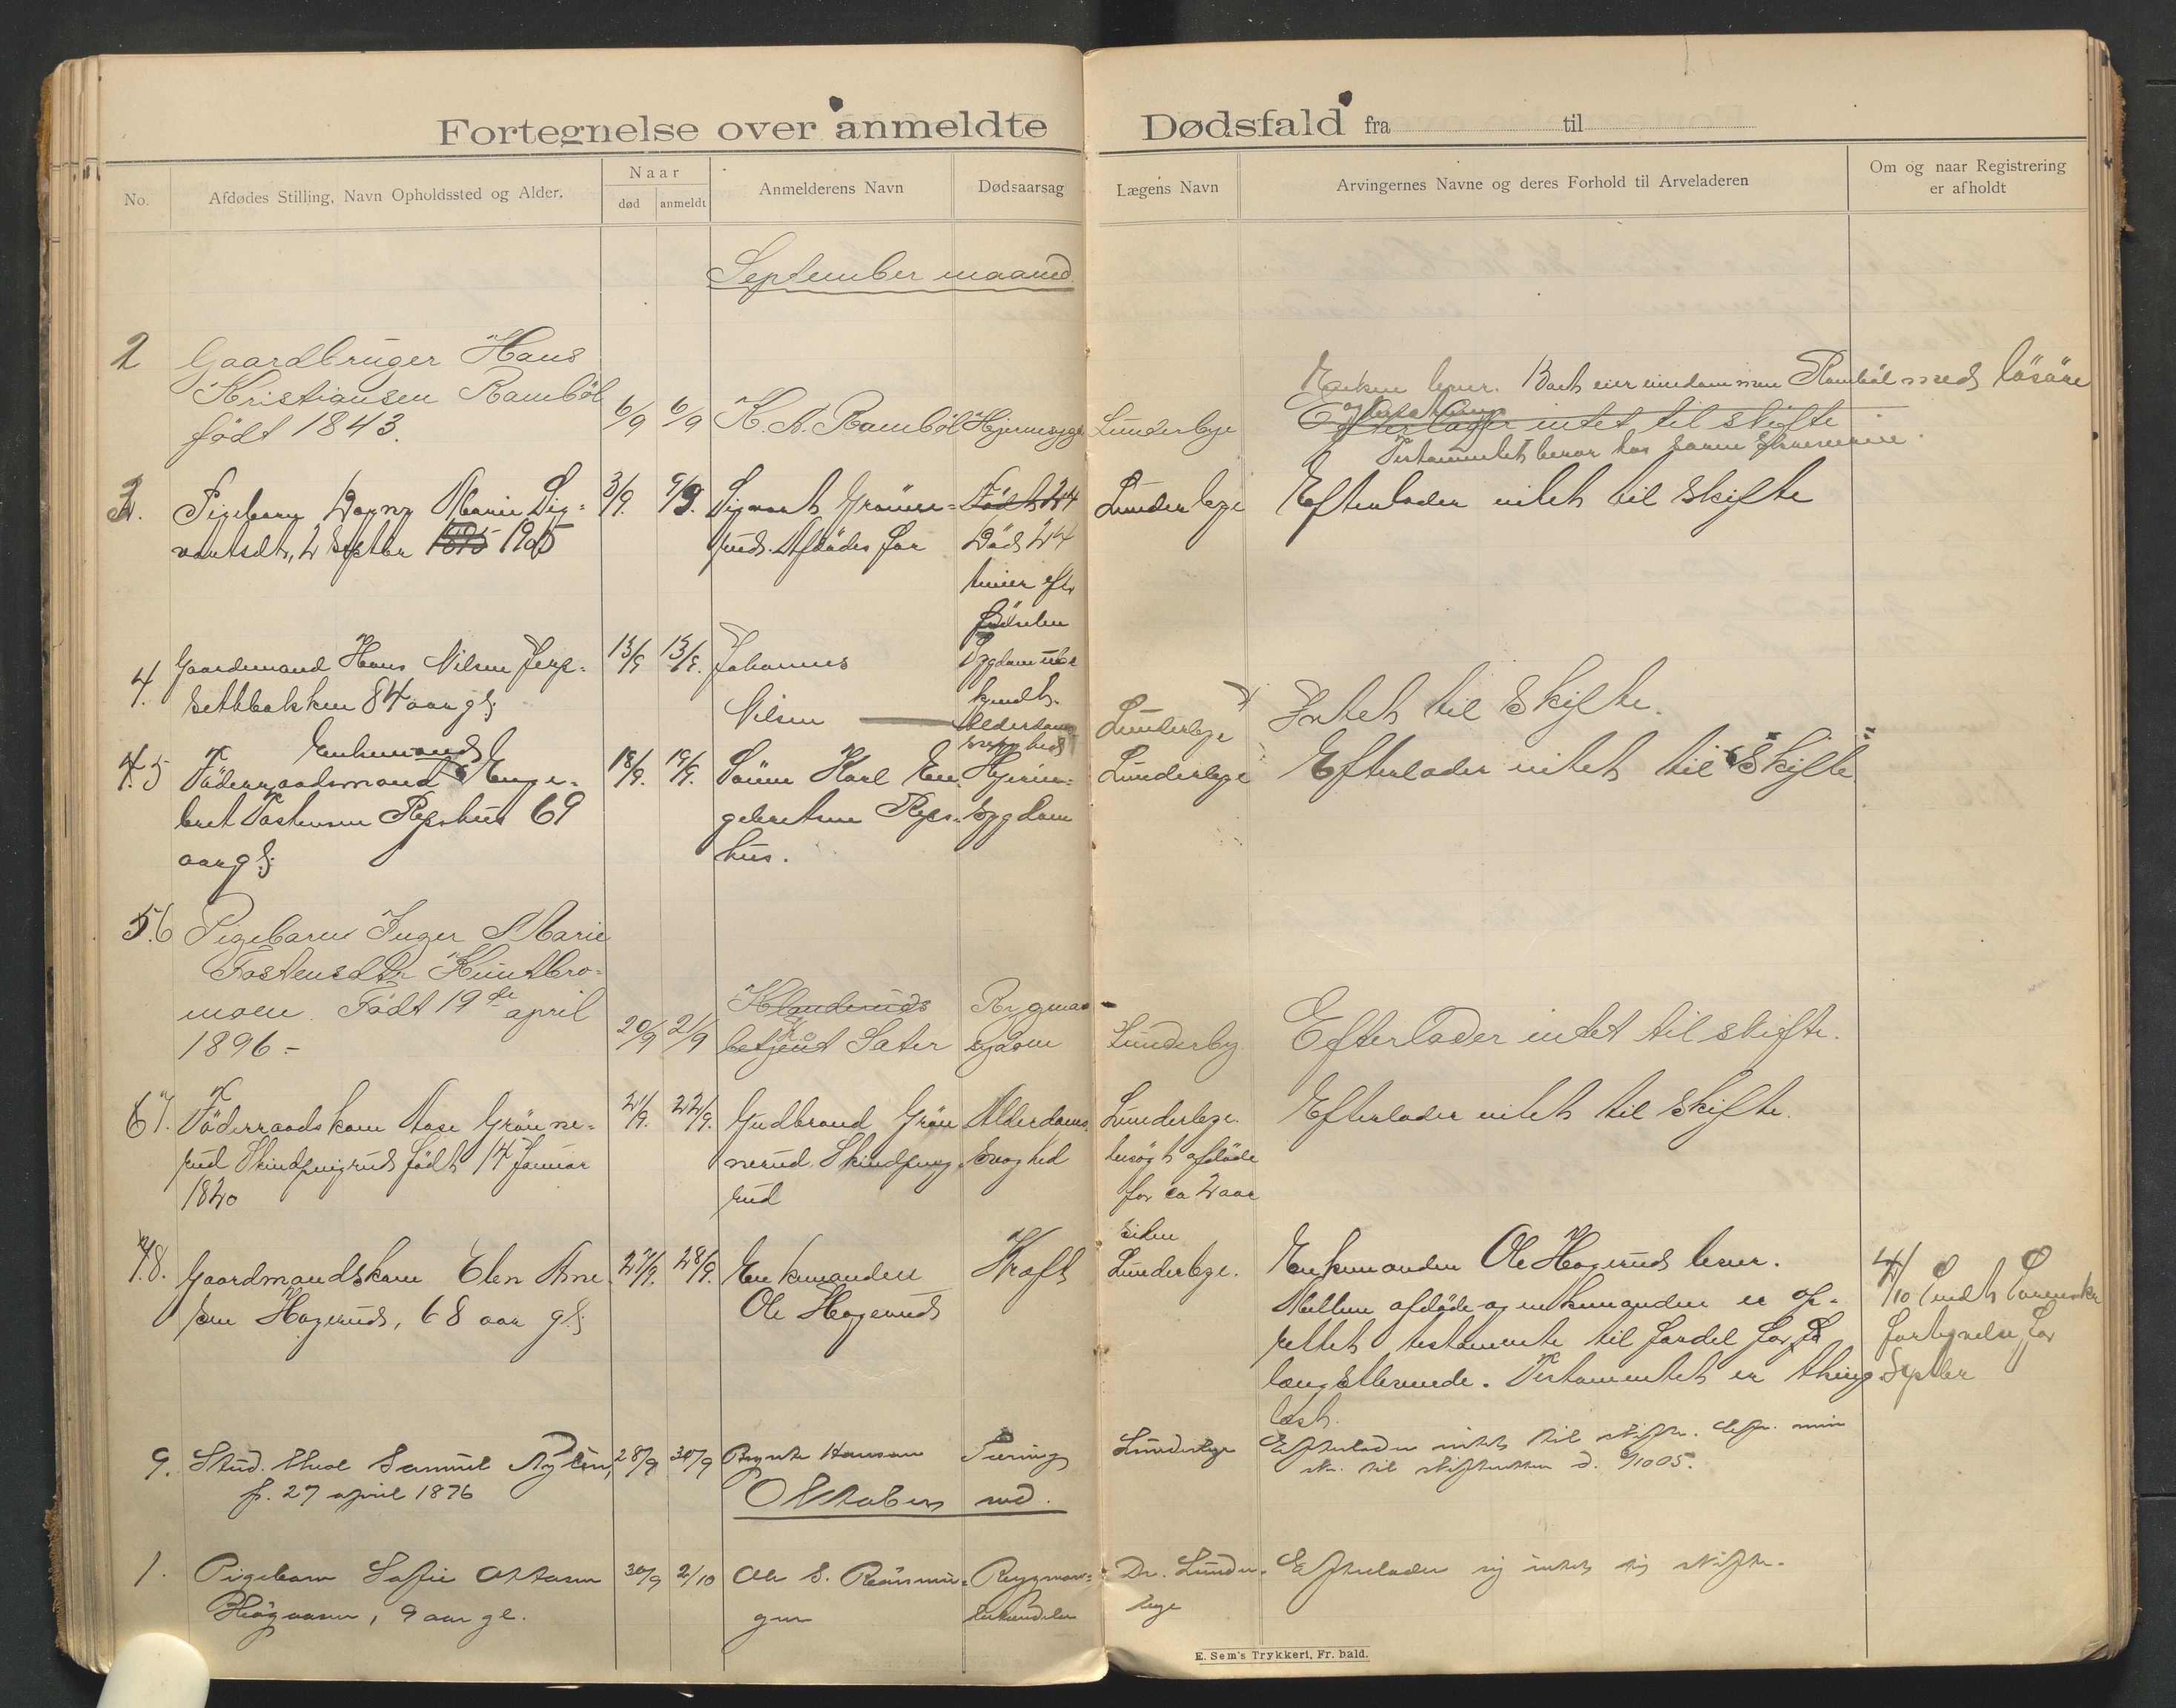 Fortegnelse over anmeldte Dødsfald fra til
No.
Afdødes Stilling, Navn Opholdssted og Alder.
Naar
død
anmeldt
Anmelderens Navn
Dødsaarsag
Lægens Navn
Arvingernes Navne og deres Forhold til Arveladeren
Om og naar Registrering
er afholdt
September maaned
2
Gaardbruger Hans
Kristiansen Ramböl
født 1843.
6/9
6/9
K. A. Ramböl
Hjernesyge
Lunderbye
Enken lever. Boet eier eiendommen Ramböl med lösöre
Efterlader intet til skifte
Testamentet beror hos
3.
Pigebarn Dagny Marie Sig-
vartsdt, 2 Septbr 1895 1905
3/9.
9/9.
Sigvart Grönne-
rud. Afdødes far
Født 24
Död 24
timer eftr
födselen
Lunderbye
Efterlader intet til skifte
4.
Gaardmand Hans Nilsen Jerp-
settbakken 84 aar gl;
13/9
13/9.
Johannes
Nilsen
Sygdom ube
kjendt.
Alderdoms
svaghed
Lunderbye
Intet til skifte.
4.5
Enkemand
Föderaadsmand Enge-
bret Tostensen Repshus 69
aar gl;
18/9.
19/9.
Sönn Karl En-
gebretsen Reps-
hus.
Hjerne-
sygdom
Lunderbye
Efterlader intet til skifte
5.6
Pigebarn Inger Marie
Tostensdtr Kundbro-
moen. Födt 19de april
1896 -
20/9
21/9
Klanderuds
betjent Sater
Rygmav
sygdom
Lunderby
Efterlader intet til skifte.
67.
Föderaadskone Aase Grönne-
rud Skindpungrud födt 14 Januar
1820
21/9.
22/9.
Gudbrand Grön
nerud. Skindpung
rud
Alderdoms
svaghed
Lunderbye.
besögt afdöde
for ca 2 aar
siden
Efterlader intet til skifte.
78.
Gaardmandskone Elen Arne
sen Hagerud, 68 aar gl;
27/9.
28/9.
Enkemanden
Ole Hagerud
Kræft
Lunderbye.
Enkemanden Ole Hagerud lever.
Mellem afdöde og enkemanden er op-
rettet testamente til fordel for
længstlevende. Testamentet er thing
læst.
4/10 Sendt
fortegnelse for
Septbr
9.
Stud. theol Samuel Nylen,
f. 27 april 1876
28/9
30/9
Bernt Hansen
Tæring
Lunderbye
Efterlader intet til skifte. Eftr. min
skr. til skifteretten d. 9/10 05.
Oktober md.
1.
Pigebarn Sofie Ottosen
Högaasen, 9 aar gl.
30/9
2/10
Ole S.
Rygmarv-
Dr. Lunder-
bye
Efterlader sig intet til skifte.
E. Sem's Trykkeri, Fr. hald.